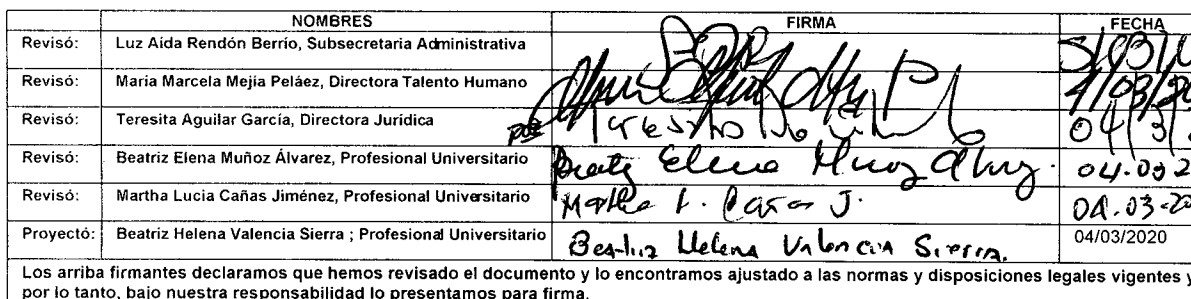 NOMBRES FIRMA FECHA
Revisó: Luz Aída Rendón Berrío, Subsecretaria Administrativa 5/03/
Revisó: María Marcela Mejía Peláez, Directora Talento Humano 4/03/20
Revisó: Teresita Aguilar García, Directora Jurídica Teresita 04/3/
Revisó: Beatriz Elena Muñoz Álvarez, Profesional Universitario Beatriz Elena Muñoz Álvarez. 04.03 2
Revisó: Martha Lucia Cañas Jiménez, Profesional Universitario Martha L. Cañas J. 04.03-20
Proyectó: Beatriz Helena Valencia Sierra ; Profesional Universitario Beatriz Helena Valencia Sierra. 04/03/2020
Los arriba firmantes declaramos que hemos revisado el documento y lo encontramos ajustado a las normas y disposiciones legales vigentes y
por lo tanto, bajo nuestra responsabilidad lo presentamos para firma.